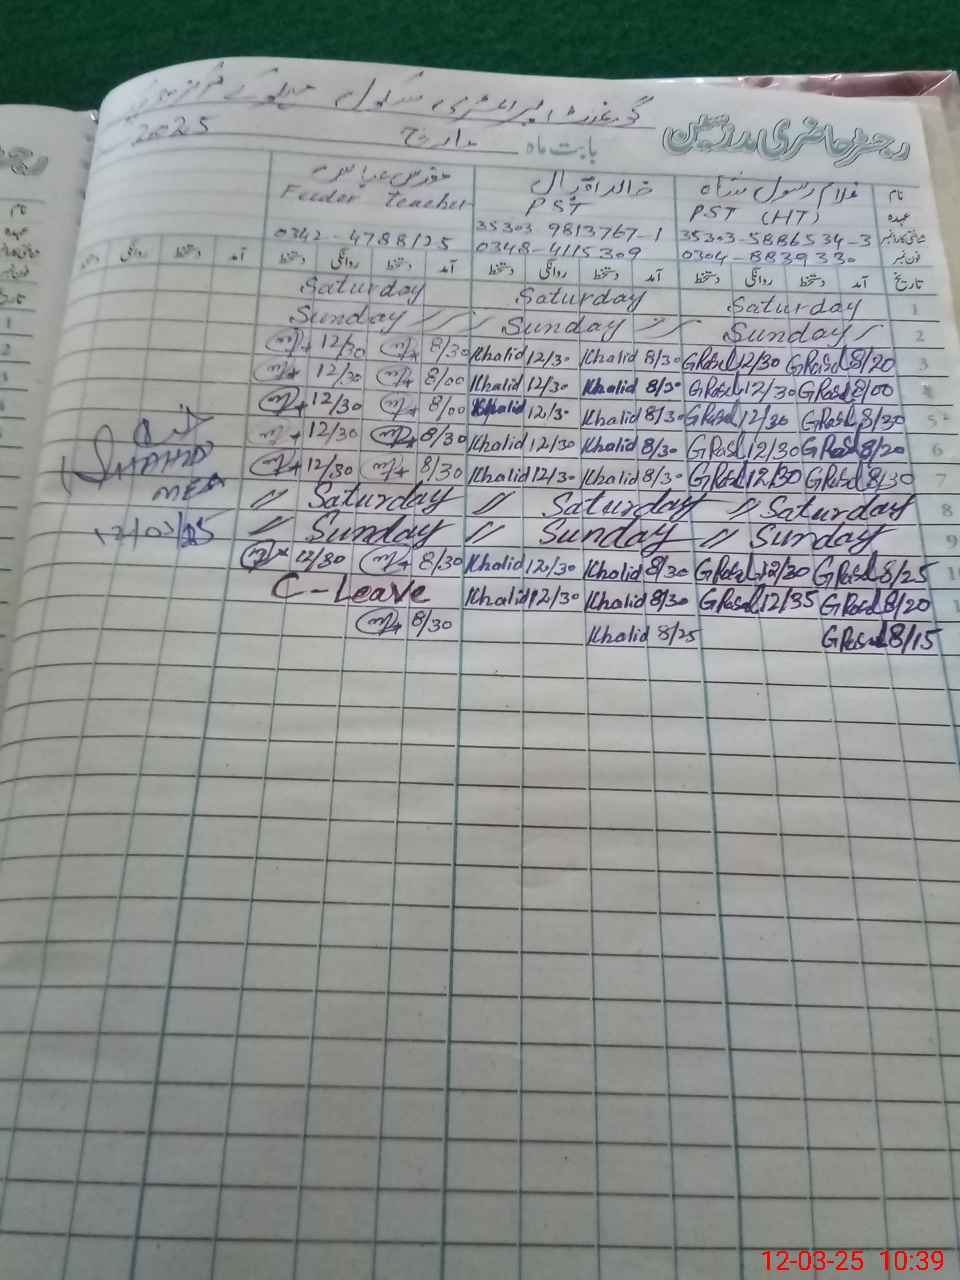 گورنمنٹ پرائمری سکول
رجسٹر حاضری مدرسین بابت ماہ مارچ 2025
نام غلام رسول شاہ خالد اقبال مقدس عباس
عہدہ PST (HT) PST Feeder teacher
35303-5886534-3 35303 9813767-1 0342-4788125
0304-8839330 0348-4115309
تاریخ آمد دستخط روانگی دستخط آمد دستخط روانگی دستخط آمد دستخط روانگی دستخط آمد دستخط روانگی دستخط
Saturday Saturday Saturday 1
Sunday // Sunday // Sunday / 2
12/30 8/30 Khalid 12/30 Khalid 8/30 GRasul 12/30 GRasul 8/20 3
12/30 8/00 Khalid 12/30 Khalid 8/30 GRasul 12/30 GRasul 8/00 4
12/30 8/00 Khalid 12/30 Khalid 8/30 GRasul 12/30 GRasul 8/30 5
12/30 8/30 Khalid 12/30 Khalid 8/30 GRasul 12/30 GRasul 8/20 6
12/30 8/30 Khalid 12/30 Khalid 8/30 GRasul 12/30 GRasul 8/30 7
// Saturday // Saturday // Saturday 8
// Sunday // Sunday // Sunday 9
12/30 8/30 Khalid 12/30 Khalid 8/30 GRasul 12/30 GRasul 8/25 10
C-Leave Khalid 12/30 Khalid 8/30 GRasul 12/35 GRasul 8/20
8/30 Khalid 8/25 GRasul 8/15
MEA
12/03/25
12-03-25 10:39